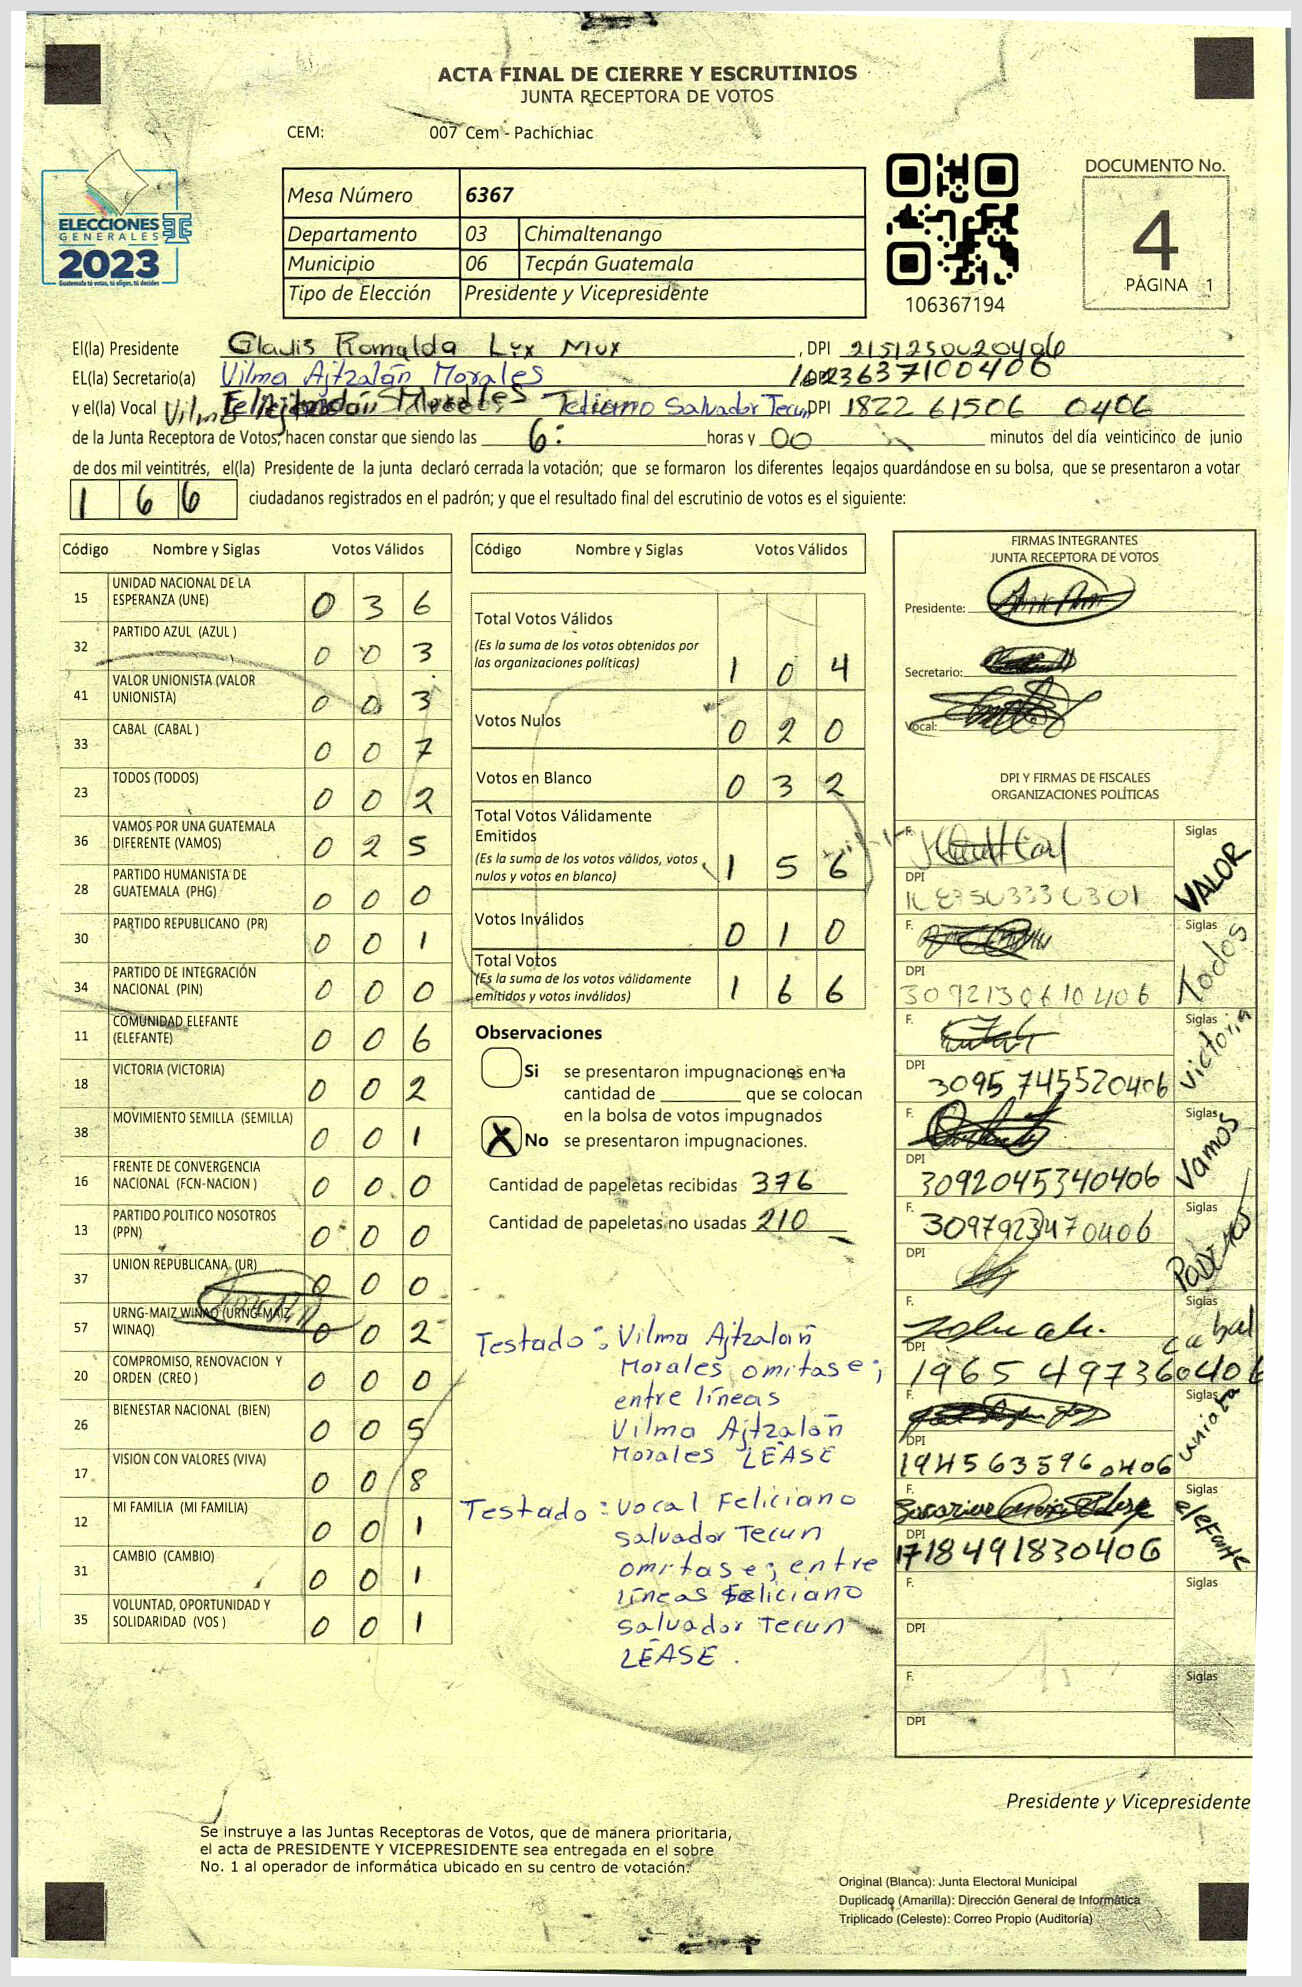 ACTA FINAL DE CIERRE Y ESCRUTINIOS
JUNTA RECEPTORA DE VOTOS
CEM: 007 Cem - Pachichiac
ELECCIONES
GENERALES
2023
Guatemala tú votas, tú eliges, tú decides
Mesa Número 6367
Departamento 03 Chimaltenango
Municipio 06 Tecpán Guatemala
Tipo de Elección Presidente y Vicepresidente
106367194
DOCUMENTO No.
4
PÁGINA 1
El(la) Presidente Gladis Romalda Lux Mux, DPI
EL(la) Secretario(a) Vilma Ajtzalán Morales
y el(la) Vocal Feliciano Salvador Tecun DPI 1822 61506 0406
de la Junta Receptora de Votos, hacen constar que siendo las 6: horas y 00 minutos del día veinticinco de junio
de dos mil veintitrés, el(la) Presidente de la junta declaró cerrada la votación; que se formaron los diferentes legajos guardándose en su bolsa, que se presentaron a votar
1 6 6 ciudadanos registrados en el padrón; y que el resultado final del escrutinio de votos es el siguiente:
Código Nombre y Siglas Votos Válidos
15 UNIDAD NACIONAL DE LA ESPERANZA (UNE) 0 3 6
32 PARTIDO AZUL (AZUL ) 0 0 3
41 VALOR UNIONISTA (VALOR UNIONISTA) 0 0 3
33 CABAL (CABAL ) 0 0 7
23 TODOS (TODOS) 0 0 2
36 VAMOS POR UNA GUATEMALA DIFERENTE (VAMOS) 0 2 5
28 PARTIDO HUMANISTA DE GUATEMALA (PHG) 0 0 0
30 PARTIDO REPUBLICANO (PR) 0 0 1
34 PARTIDO DE INTEGRACIÓN NACIONAL (PIN) 0 0 0
11 COMUNIDAD ELEFANTE (ELEFANTE) 0 0 6
18 VICTORIA (VICTORIA) 0 0 2
38 MOVIMIENTO SEMILLA (SEMILLA) 0 0 1
16 FRENTE DE CONVERGENCIA NACIONAL (FCN-NACION ) 0 0 0
13 PARTIDO POLITICO NOSOTROS (PPN) 0 0 0
37 UNION REPUBLICANA (UR) 0 0 0
57 URNG-MAIZ WINAQ (URNG-MAIZ WINAQ) 0 0 2
20 COMPROMISO, RENOVACION Y ORDEN (CREO ) 0 0 0
26 BIENESTAR NACIONAL (BIEN) 0 0 5
17 VISION CON VALORES (VIVA) 0 0 8
12 MI FAMILIA (MI FAMILIA) 0 0 1
31 CAMBIO (CAMBIO) 0 0 1
35 VOLUNTAD, OPORTUNIDAD Y SOLIDARIDAD (VOS ) 0 0 1
Código Nombre y Siglas Votos Válidos
Total Votos Válidos
(Es la suma de los votos obtenidos por
las organizaciones políticas) 1 0 4
Votos Nulos 0 2 0
Votos en Blanco 0 3 2
Total Votos Válidamente
Emitidos
(Es la suma de los votos válidos, votos
nulos y votos en blanco) 1 5 6
Votos Inválidos 0 1 0
Total Votos
(Es la suma de los votos válidamente
emitidos y votos inválidos) 1 6 6
Observaciones
Si se presentaron impugnaciones en la
cantidad de ________ que se colocan
en la bolsa de votos impugnados
X No se presentaron impugnaciones.
Cantidad de papeletas recibidas 376
Cantidad de papeletas no usadas 210
Testado: Vilma Ajtzalán
Morales omitase;
entre líneas
Vilma Ajtzalán
Morales LEASE
Testado: vocal Feliciano
Salvador Tecun
omitase; entre
líneas Feliciano
Salvador Tecun
LÉASE.
FIRMAS INTEGRANTES
JUNTA RECEPTORA DE VOTOS
Presidente:
Secretario:
Vocal:
DPI Y FIRMAS DE FISCALES
ORGANIZACIONES POLÍTICAS
F. Siglas VALOR
DPI
F. Siglas Todos
DPI 3092130610406
F. Siglas Victoria
DPI 3095 745520406
F. Siglas Vamos
DPI 3092045340406
F. 3097923470406 Siglas
DPI
F. Siglas cabal
DPI 1965 497360406
F. Siglas
DPI 194563596 0406
F. Siglas elefante
DPI 1718491830406
F. Siglas
DPI
F. Siglas
DPI
Presidente y Vicepresidente
Se instruye a las Juntas Receptoras de Votos, que de manera prioritaria,
el acta de PRESIDENTE Y VICEPRESIDENTE sea entregada en el sobre
No. 1 al operador de informática ubicado en su centro de votación.
Original (Blanca): Junta Electoral Municipal
Duplicado (Amarilla): Dirección General de Informática
Triplicado (Celeste): Correo Propio (Auditoría)